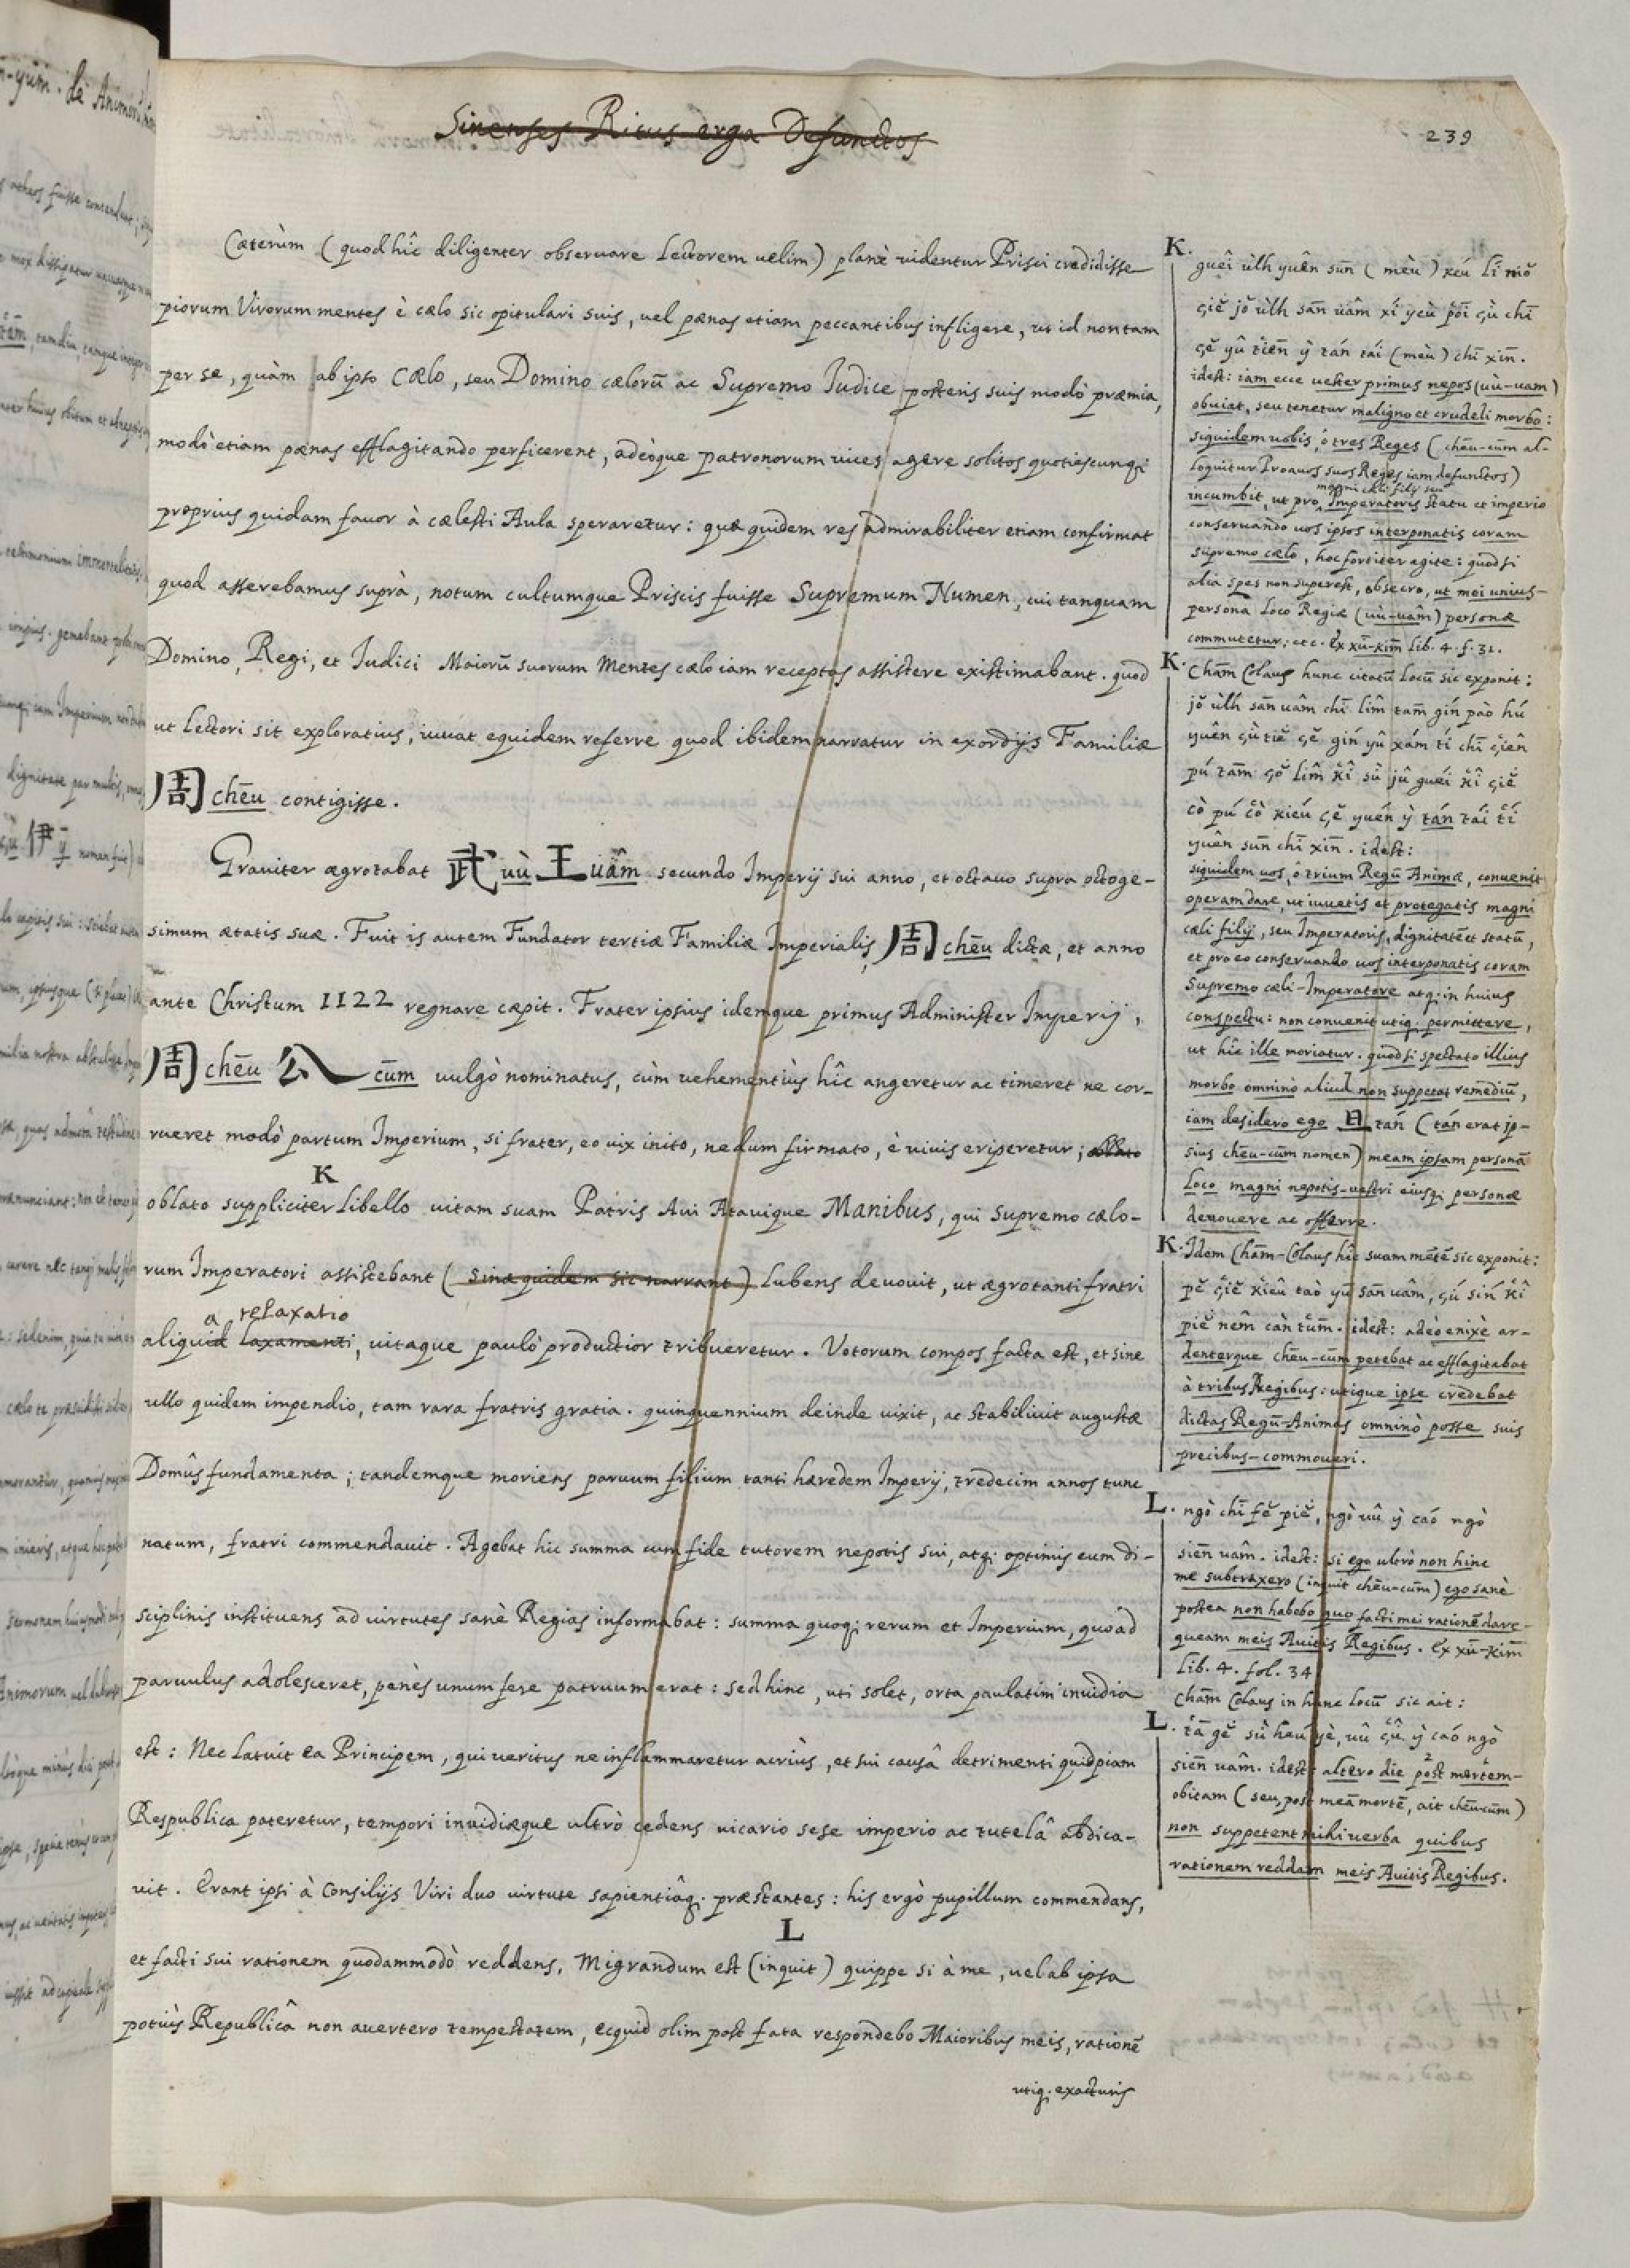 Sinenses Ritus erga Defunctos
239
Cæterùm (quod hîc diligenter observare Lectorem uelim) planè uidentur Prisci credidisse
piorum Virorum mentes è cælo sic opitulari suis, uel pænas etiam peccantibus infligere, ut id non tam
per se, quàm ab ipso Cælo, seu Domino cælorū ac Supremo Iudice posteris suis modò præmia,
modò etiam pænas efflagitando perficerent, adeòque patronorum uices agere solitos quotiescunq;
proprius quidam fauor à cælesti Aula speraretur: quæ quidem res admirabiliter etiam confirmat
quod asserebamus suprà, notum cultumque Priscis fuisse Supremum Numen, cui tanquam
Domino, Regi, et Iudici Maiorū suorum Mentes cælo iam receptas assistere existimabant. quod
ut Lectori sit exploratius, iuuat equidem referre quod ibidem narratur in exordijs Familiæ
周 chēu contigisse.
Grauiter ægrotabat 武 uù 王 uâm secundo Imperij sui anno, et octauo supra octoge-
simum ætatis suæ. Fuit is autem Fundator tertiæ Familiæ Imperialis, 周 chēu dictæ, et anno
ante Christum 1122 regnare cæpit. Frater ipsius idemque primus Administer Imperij,
周 chēu 公 cūm uulgò nominatus, cùm uehementiùs hîc angeretur ac timeret ne cor-
rueret modò partum Imperium, si frater, eo uix inito, nedum firmato, è uiuis eriperetur; oblato
K
oblato suppliciter Libello uitam suam Patris Aui Atauique Manibus, qui supremo cælo-
rum Imperatori assistebant (Sinæ quidem sic narrant) Lubens deuouit, ut ægrotanti fratri
a relaxatio
aliquid laxamenti, uitaque paulò productior tribueretur. Votorum compos facta est, et sine
ullo quidem impendio, tam rara fratris gratia. quinquennium deinde uixit, ac stabiliuit augustæ
Domûs fundamenta; tandemque moriens paruum filium tanti hæredem Imperij, tredecim annos tunc
natum, fratri commendauit. Agebat hic summa cum fide tutorem nepotis sui, atq; optimis eum di-
sciplinis instituens ad uirtutes sanè Regias informabat: summa quoq; rerum et Imperium, quoad
paruulus adolesceret, penès unum fere patruum erat: sed hinc, uti solet, orta paulatim inuidia
est: Nec Latuit ea Principem, qui ueritus ne inflammaretur acriùs, et sui causâ detrimenti quidpiam
Respublica pateretur, tempori inuidiæque ultrò cedens uicario sese imperio ac tutelâ abdica-
uit. Erant ipsi à Consilijs Viri duo uirtute sapientiâq; præstantes: his ergò pupillum commendans,
L
et facti sui rationem quodammodò reddens, Migrandum est (inquit) quippe si à me, uel ab ipsa
potiùs Republicâ non auertero tempestatem, ecquid olim post fata respondebo Maioribus meis, rationē
utiq; exacturis
K.
guêi ùlh yuên sūn (mèu) keú lí niŏ
çiĕ jŏ ùlh sān uâm xí yeù
çĕ yû tiēn ỳ tán tái (mèu) chī xīn.
idest: iam ecce uester primus nepos (uù-uam)
obuiat, seu tenetur maligno et crudeli morbo:
siquidem uobis, ô tres Reges (chēu-cūm al-
loquitur Proauos suos Reges iam defunctos)
magni cæli filij seu
incumbit, ut pro Imperatoris statu et imperio
conseruando uos ipsos interponatis coram
supremo cælo, hoc fortiter agite: quod si
alia spes non superest, obsecro, ut mei unius-
persona Loco Regiæ (uù-uâm) personæ
commutetur; etc. Ex xū-kīm Lib. 4. f. 31.
K. Chām Colaus hunc citatū Locū sic exponit:
jŏ ùlh sān uâm chī lîm tām gín pào hú
yuên çù tiĕ çĕ gín yû xám tí chī çiên
pú tām çŏ lîm kî sù jû guéi kî çiĕ
cò pú cò kiéu çĕ yuén ỳ tán tái tí
yuên sūn chī xīn. idest:
siquidem uos, ô trium Regū Animæ, conuenit
operam dare, ut iuuetis et protegatis magni
cæli filij, seu Imperatoris, dignitatē et statū,
et pro eo conseruando uos interponatis coram
Supremo cæli-Imperatore atq; in huius
conspectu: non conuenit utiq; permittere,
ut hîc ille moriatur. quod si spectato illius
morbo omninò aliud non suppetat remediū,
iam desidero ego 旦 tán (tán erat ip-
sius chēu-cūm nomen) meam ipsam personā
Loco magni nepotis-uestri eiusq; personæ
deuouere ac offerre.
K. Idem Chām-Colaus hîc suam mētē sic exponit:
pĕ çiĕ kiêu tào yū sān uâm, çú sín kî
piĕ nêm càn tūm. idest: adeò enixè ar-
denterque chēu-cūm petebat ac efflagitabat
à tribus Regibus: utique ipse credebat
dictas Regū-Animas omninò posse suis
precibus-commoueri.
L. ngò chī fĕ piĕ, ngò uû ỳ caó ngò
siēn uâm. idest: si ego ultrò non hinc
me subtraxero (inquit chēu-cūm) ego sanè
postea non habebo quo facti mei rationē dare-
queam meis Auitis Regibus. Ex xū-kīm
Lib. 4. fol. 34
Chām Colaus in hunc Locū sic ait:
L. tā gĕ sù haú yè, uû çû ỳ caó ngò
siēn uâm. idest: altero die post mortem-
obitam (seu, post meā mortē, ait chēu-cūm)
non suppetent mihi uerba quibus
rationem reddam meis Auitis Regibus.